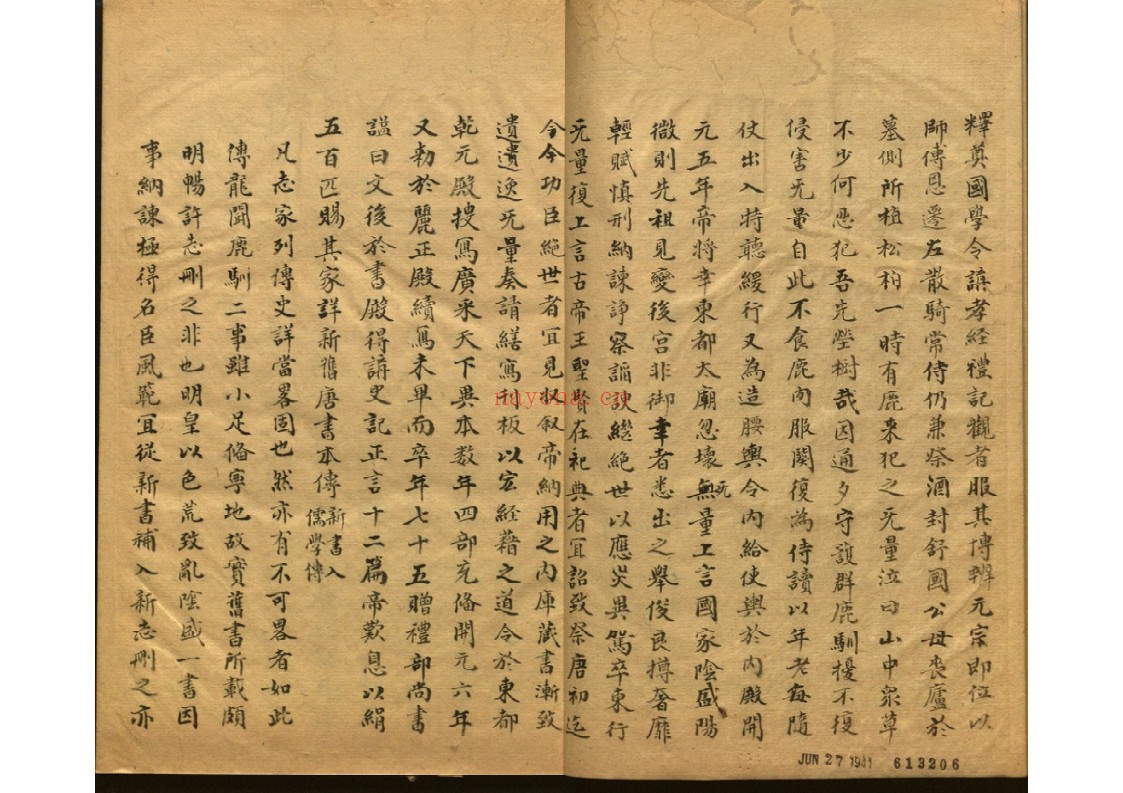 釋奠國學令講孝經禮記觀者服其博辨元宗即位以
師傅恩遷左散騎常侍仍兼祭酒封舒國公母喪廬於
墓側所植松柏一時有鹿來犯之无量泣曰山中衆草
不少何忍犯吾先塋樹哉因通夕守護群鹿馴擾不復
侵害无量自此不食鹿肉服闋復為侍讀以年老每隨
仗出入特聽緩行又為造腰輿令內給使輿於內殿開
元五年帝將幸東都太廟忽壞無无量上言國家陰盛陽
微則先祖見變後宮非御幸者悉出之舉俊良撙奢靡
輕賦慎刑納諫諍察謟諛繼絕世以應災異駕卒東行
无量復上言古帝王聖賢在祀典者宜詔致祭唐初迄
今令功臣絕世者宜見收叙帝納用之內庫藏書漸致
遺逸无量奏請繕寫刊板以宏經藉之道令於東都
乾元殿搜寫廣采天下異本數年四部充俻開元六年
又勅於麗正殿續寫未畢而卒年七十五贈禮部尚書
謚曰文後於書殿得講史記正言十二篇帝歎息以絹
五百匹賜其家詳新舊唐書本傳新書入儒學傳
凡志家列傳史詳當畧固也然亦有不可畧者如此
傳龍鬪鹿馴二事雖小足俻寧地故實舊書所載頗
明暢許志刪之非也明皇以色荒致亂陰盛一書因
事納諫極得名臣風範宜從新書補入新志刪之亦
JUN 27 1941 613206